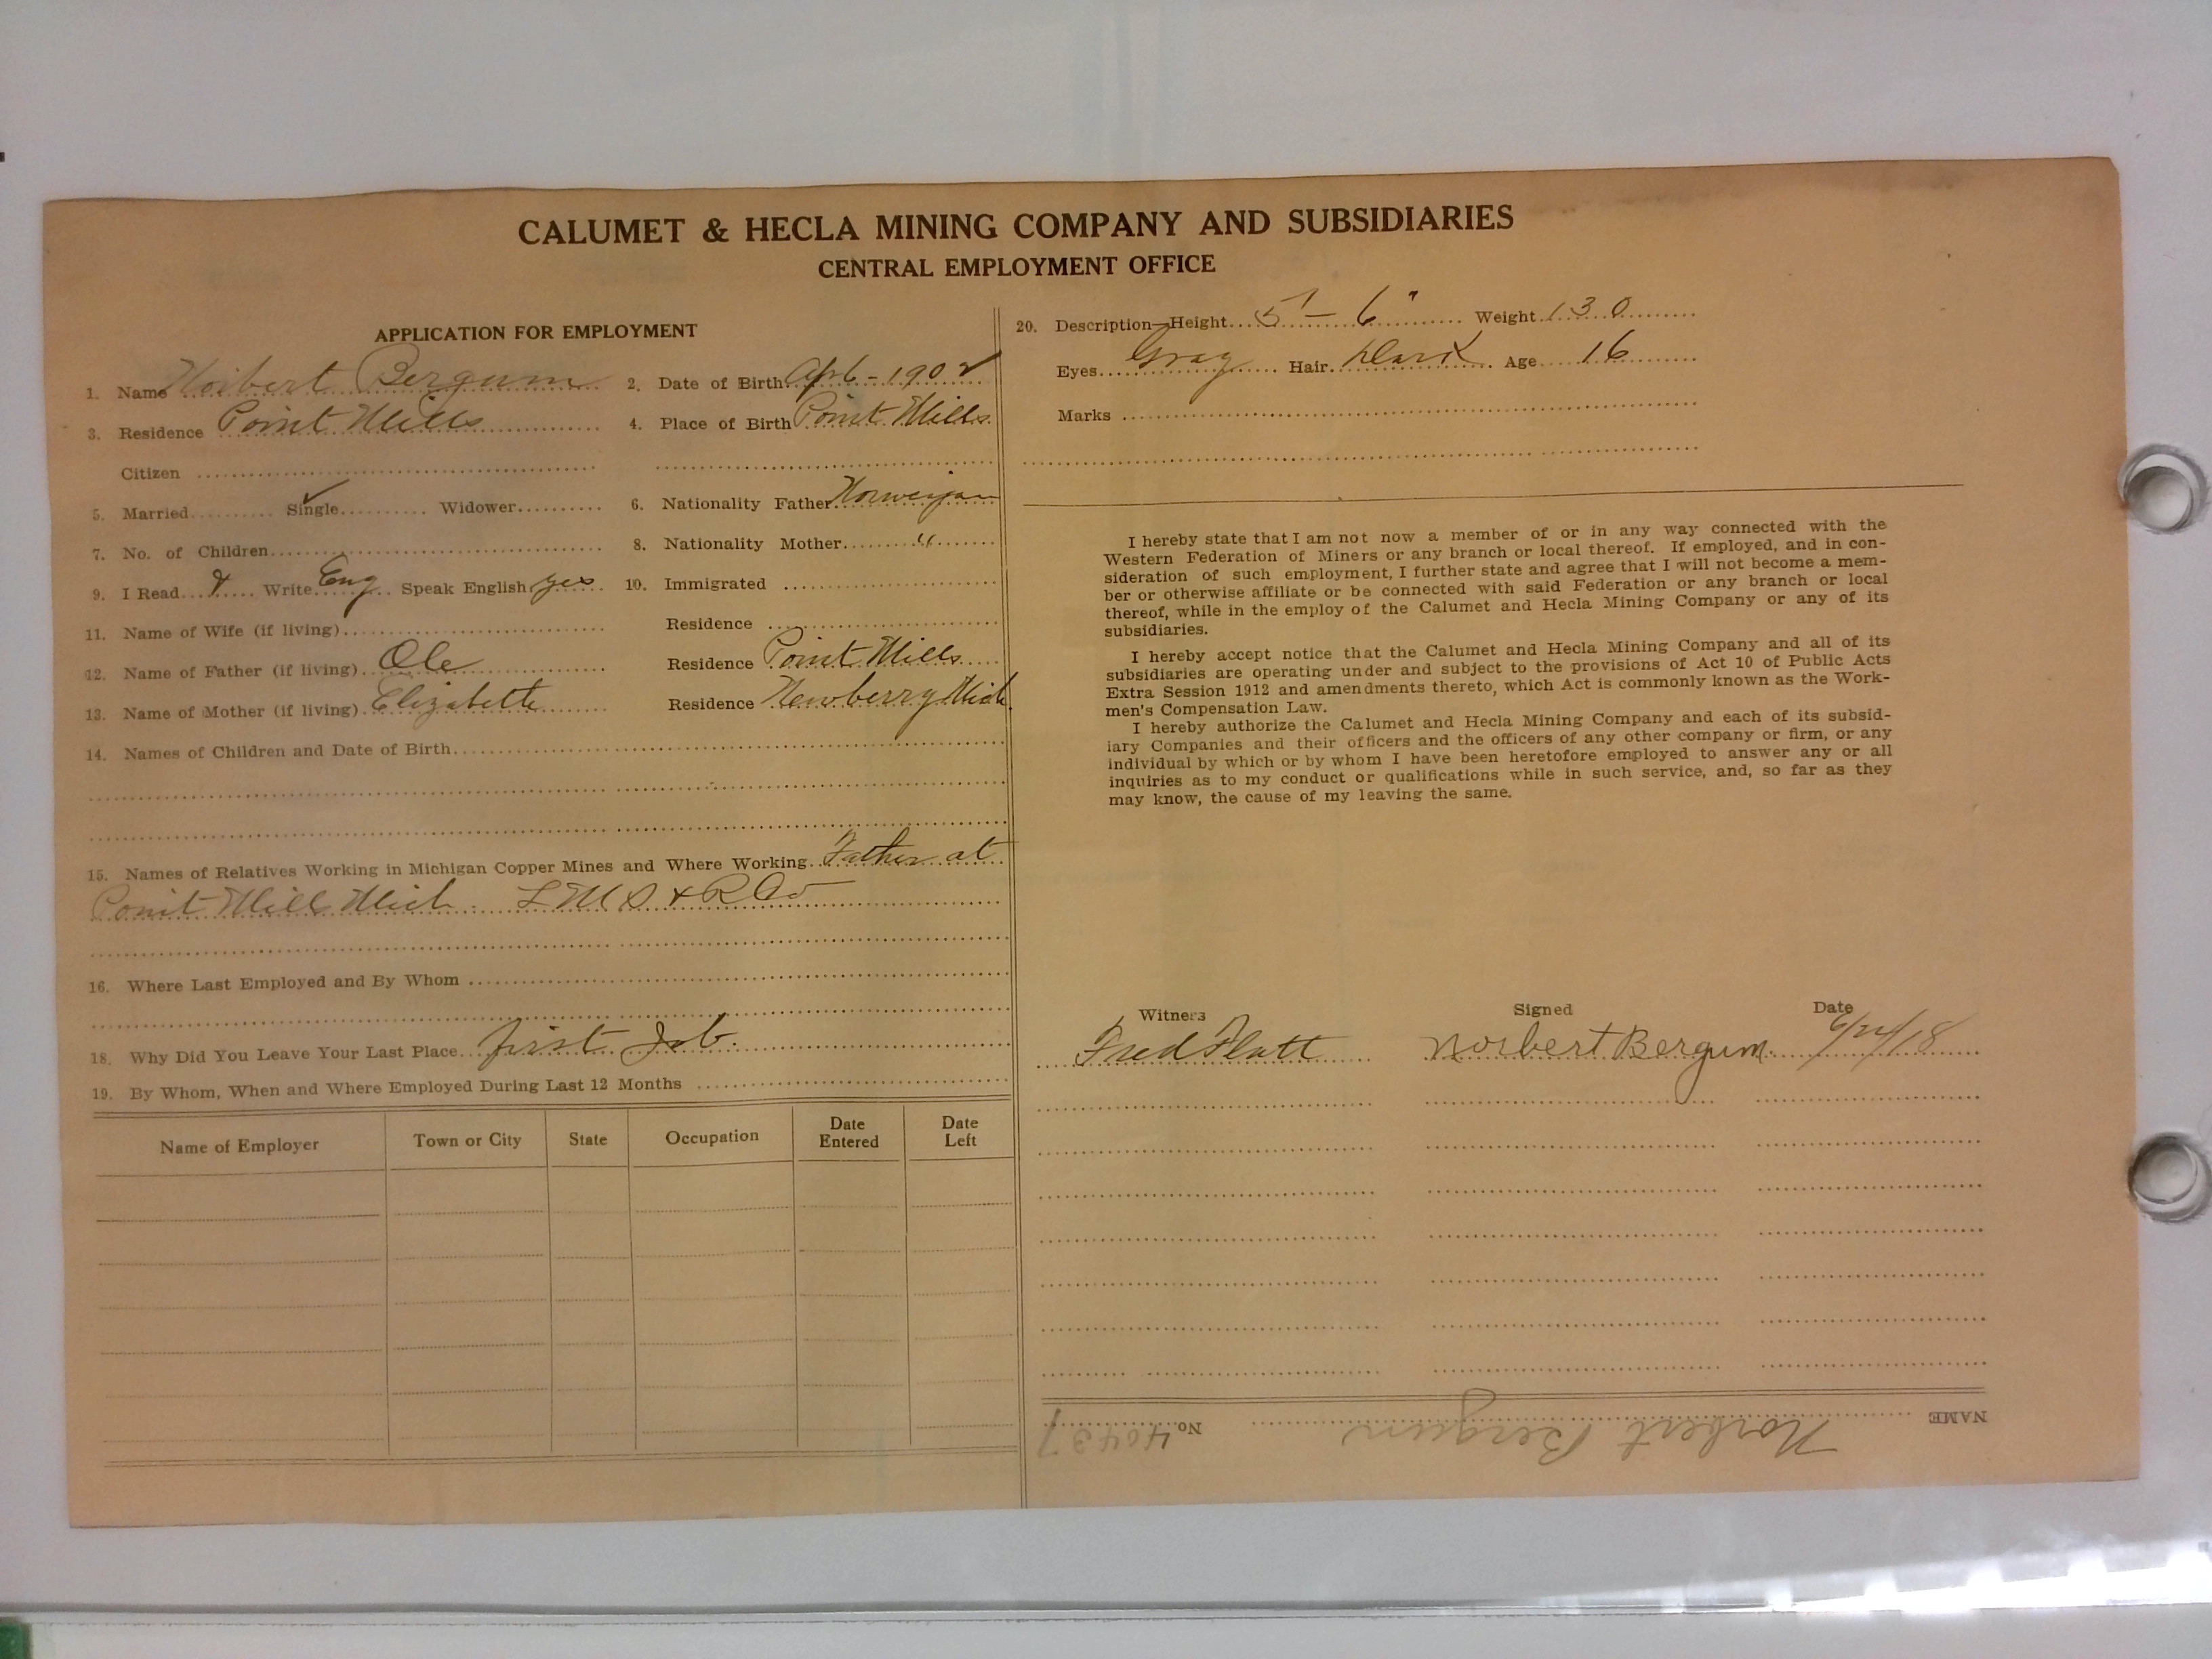 CALUMET & HECLA MINING COMPANY AND SUBSIDIARIES
CENTRAL EMPLOYMENT OFFICE
APPLICATION FOR EMPLOYMENT
1. Name Norbert Bergum 2. Date of Birth Apr 6 - 1902
3. Residence Point Mills 4. Place of Birth Point Mills
Citizen
5. Married Single ✓ Widower 6. Nationality Father Norwegian
7. No. of Children 8. Nationality Mother "
9. I Read & Write Eng Speak English yes 10. Immigrated
11. Name of Wife (if living) Residence
12. Name of Father (if living) Ole Residence Point Mills
13. Name of Mother (if living) Elizabeth Residence Newberry Mich.
14. Names of Children and Date of Birth
15. Names of Relatives Working in Michigan Copper Mines and Where Working Father at
Point Mill Mich. L M S & R Co
16. Where Last Employed and By Whom
18. Why Did You Leave Your Last Place first Job.
19. By Whom, When and Where Employed During Last 12 Months
Name of Employer Town or City State Occupation Date Entered Date Left
20. Description—Height 5' - 6" Weight 130
Eyes Gray Hair Dark Age 16
Marks
I hereby state that I am not now a member of or in any way connected with the
Western Federation of Miners or any branch or local thereof. If employed, and in con-
sideration of such employment, I further state and agree that I will not become a mem-
ber or otherwise affiliate or be connected with said Federation or any branch or local
thereof, while in the employ of the Calumet and Hecla Mining Company or any of its
subsidiaries.
I hereby accept notice that the Calumet and Hecla Mining Company and all of its
subsidiaries are operating under and subject to the provisions of Act 10 of Public Acts
Extra Session 1912 and amendments thereto, which Act is commonly known as the Work-
men's Compensation Law.
I hereby authorize the Calumet and Hecla Mining Company and each of its subsid-
iary Companies and their officers and the officers of any other company or firm, or any
individual by which or by whom I have been heretofore employed to answer any or all
inquiries as to my conduct or qualifications while in such service, and, so far as they
may know, the cause of my leaving the same.
Witness Signed Date
Fred Flatt Norbert Bergum 6/24/18
NAME Norbert Bergum No. 40437